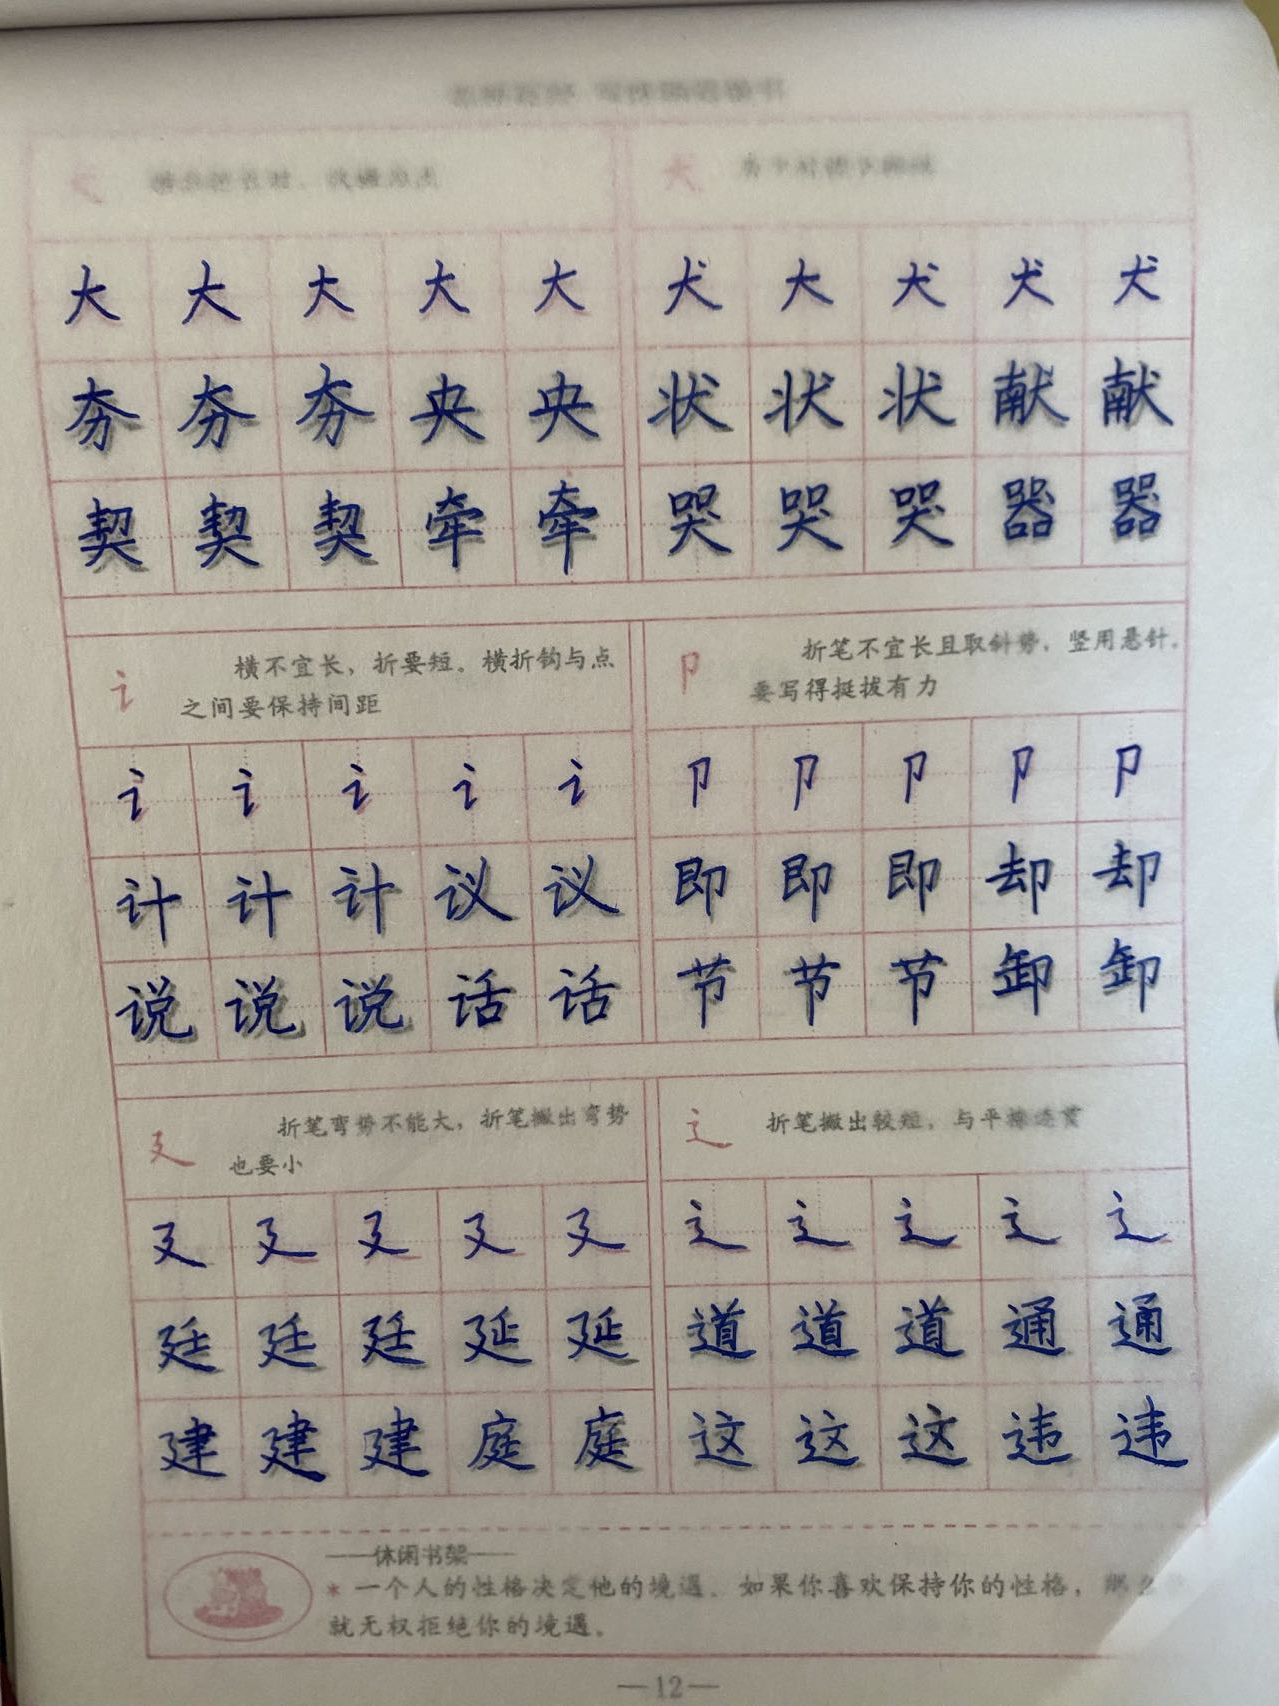 大 大 大 大 大
夯 夯 夯 央 央
契 契 契 牵 牵
犬 大 犬 犬 犬
状 状 状 献 献
哭 哭 哭 器 器
讠 横不宜长，折要短。横折钩与点
之间要保持间距
讠 讠 讠 讠 讠
计 计 计 议 议
说 说 说 话 话
卩 折笔不宜长且取斜势，竖用悬针，
要写得挺拔有力
卩 卩 卩 卩 卩
即 即 即 却 却
节 节 节 卸 卸
廴 折笔弯势不能大，折笔搬出弯势
也要小
廴 廴 廴 廴 廴
廷 廷 廷 延 延
建 建 建 庭 庭
辶 折笔搬出较短，与平捺连贯
辶 辶 辶 辶 辶
道 道 道 通 通
这 这 这 违 违
——休闲书架——
* 一个人的性格决定他的境遇。如果你喜欢保持你的性格，
就无权拒绝你的境遇。
—12—